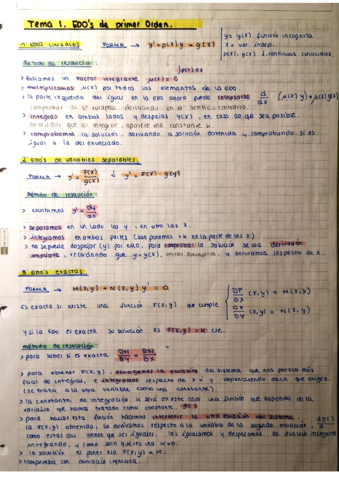 Tema 1. EDO's de primer Orden.
1. EDOs LINEALES FORMA → y' + p(x) y = g(x)
y = y(x) función incógnita
x = var. indep.
p(x), g(x) : continuas conocidas.
Método de resolución:
> Buscamos un factor integrante μ(x) =
> multiplicamos μ(x) por todos los elementos de la EDO
> la parte izquierda del igual en la EDO ahora puede colapsarse d/dx (μ(x) y) = μ(x) g(x)
comprobar si se
> integras en ambos lados y despejas y(x), en caso de que sea posible.
al integrar, aparece una constante K
> comprobamos la solución, derivando la solución obtenida y comprobando si es
igual a la del enunciado.
2. EDO's de variables separables.
FORMA → y' = f(x)/g(x) ó y' = f(x) · g(y)
Método de resolución:
> escribimos y' = dy/dx
> separamos en un lado las y, en otro las x.
> integramos en ambas partes (las ponemos + K en la parte de las x)
> no se puede despejar (y) por ello, para comprobar la solución se usa derivada
implícita, recordando que y = y(x), y derivamos respecto de x.
3. EDO's exactas
FORMA → M(x,y) + N(x,y) y' = 0
Es exacta si existe una función F(x,y) que cumple
∂F/∂x (x,y) = M(x,y)
∂F/∂y (x,y) = N(x,y)
Y si la EDO es exacta su solución es F(x,y) = K cte.
método de resolución
> para saber si es exacta ∂M/∂y = ∂N/∂x
> para obtener F(x,y), escogemos la ecuación del sistema que nos parezca más
fácil de integrar, e integramos respecto de x ó y dependiendo de la que exige.
(se trata a la otra variable como una constante)
> la constante de integración K será en este caso una función que dependa de la
variable que hemos tratado como constante.
> para hallar esta función hacemos la otra ecuación del sistema,
la F(x,y) obtenida, la derivamos respecto a la variable de la segunda ecuación,
como estas dos tienen que ser iguales, las igualamos y despejamos la función incógnita
integrando, y como solo queríamos una K = 0.
> la solución es F(x,y) = K.
> comprueba con derivación implícita.